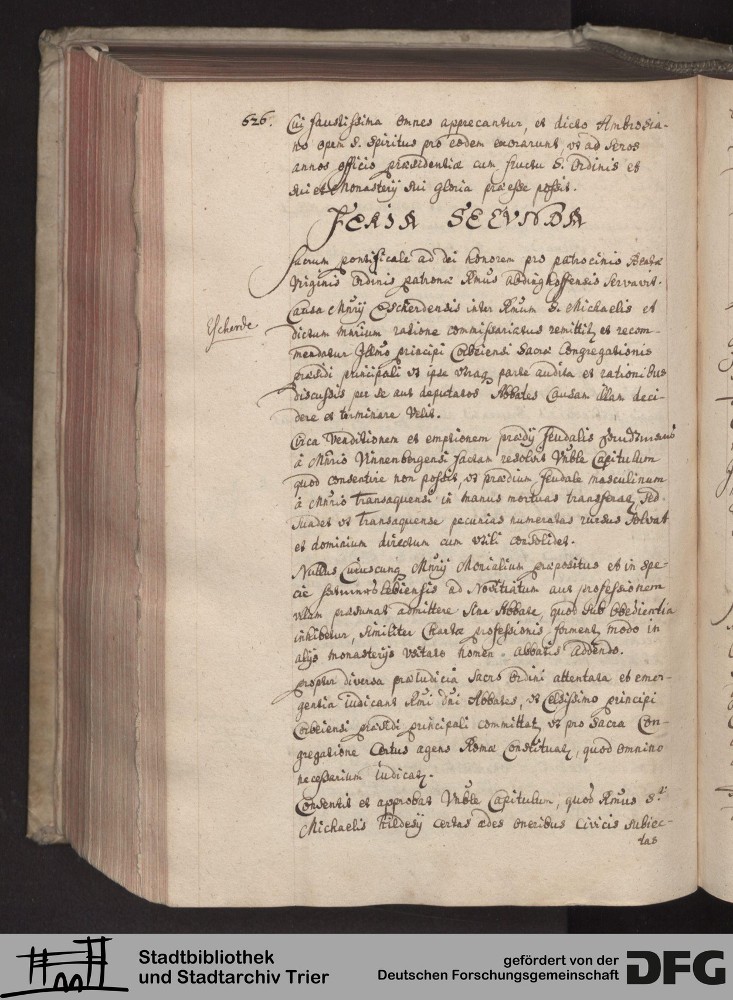 626. Cui faustissima omnes apprecantur, et dicto Ambrosia-
no opem S. Spiritus pro eodem exorarunt, ut ad seros
annos officio præsidentiæ cum fructu S. Ordinis et
sui et Monasterij sui gloria præesse possit.
FERIA SECUNDA
Sacrum pontificale ad dei honorem pro patrocinio Beatæ
Virginis Ordinis patronæ Rmus Abdinghoffensis servavit.
Escherde
Causa Mnrij Escherdensis inter Rmum S. Michaelis et
dictum Mnrium ratione commissariatus remittitz et recom-
mendatur Illmo principi Corbeiensi Sacræ Congregationis
præsidi principali ut ipse utraqz parte audita et rationibus
discussis per se aut deputatos Abbates Causam illam deci-
dere et terminare velit.
Circa Venditionem et emptionem prædij feudalis
à Mnrio Vinnenbergensi factam resolvit Vnble Capitulum
quod consentire non possit, ut prædium feudale masculinum
à Mnrio Transaquensi in manus mortuas transferatz, sed
suadet ut Transaquense pecunias numeratas rursus solvat
et dominium directum cum utili consolidet.
Nullus Cuiuscunqz Mnrij Monialium præpositus et in spe-
cie ad Novitiatum aut professionem
ullam præsumat admittere sine Abbate, quod sub obedientia
inhibetur, similiter Chartæ professionis formentz modo in
alijs monasterijs usitato nomen abbatis addendo.
propter diversa præiudicia sacro Ordini attentata et emer-
gentia iudicant Rmi Dni Abbates, ut Celsissimo principi
Corbeiensi præsidi principali committatz ut pro Sacra Con-
gregatione Certus agens Romæ Constituatz, quod omnino
necessarium iudicatz.
Consentit et approbat Vnble Capitulum, quod Rmus S.ti
Michaelis Hildesij certas ædes oneribus civicis subiec-
tas
Stadtbibliothek
und Stadtarchiv Trier
gefördert von der
Deutschen Forschungsgemeinschaft
DFG